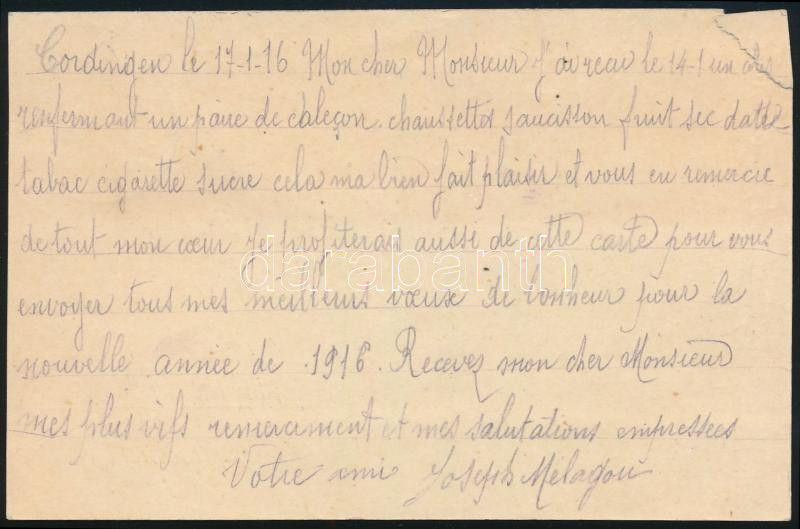 Cordingen le 17-1-16 Mon cher Monsieur J'ai recu le 14-1 un colis
renfermant un paire de caleçon chaussettes saucisson fruit sec datte
tabac cigarette sucre cela ma bien fait plaisir et vous en remercie
de tout mon cœur Je profiterai aussi de cette carte pour vous
darabanth
envoyer tous mes meilleurs vœux de bonheur pour la
nouvelle année de 1916. Recevez mon cher Monsieur
mes plus vifs remerciment et mes salutations empressées
Votre ami Joseph